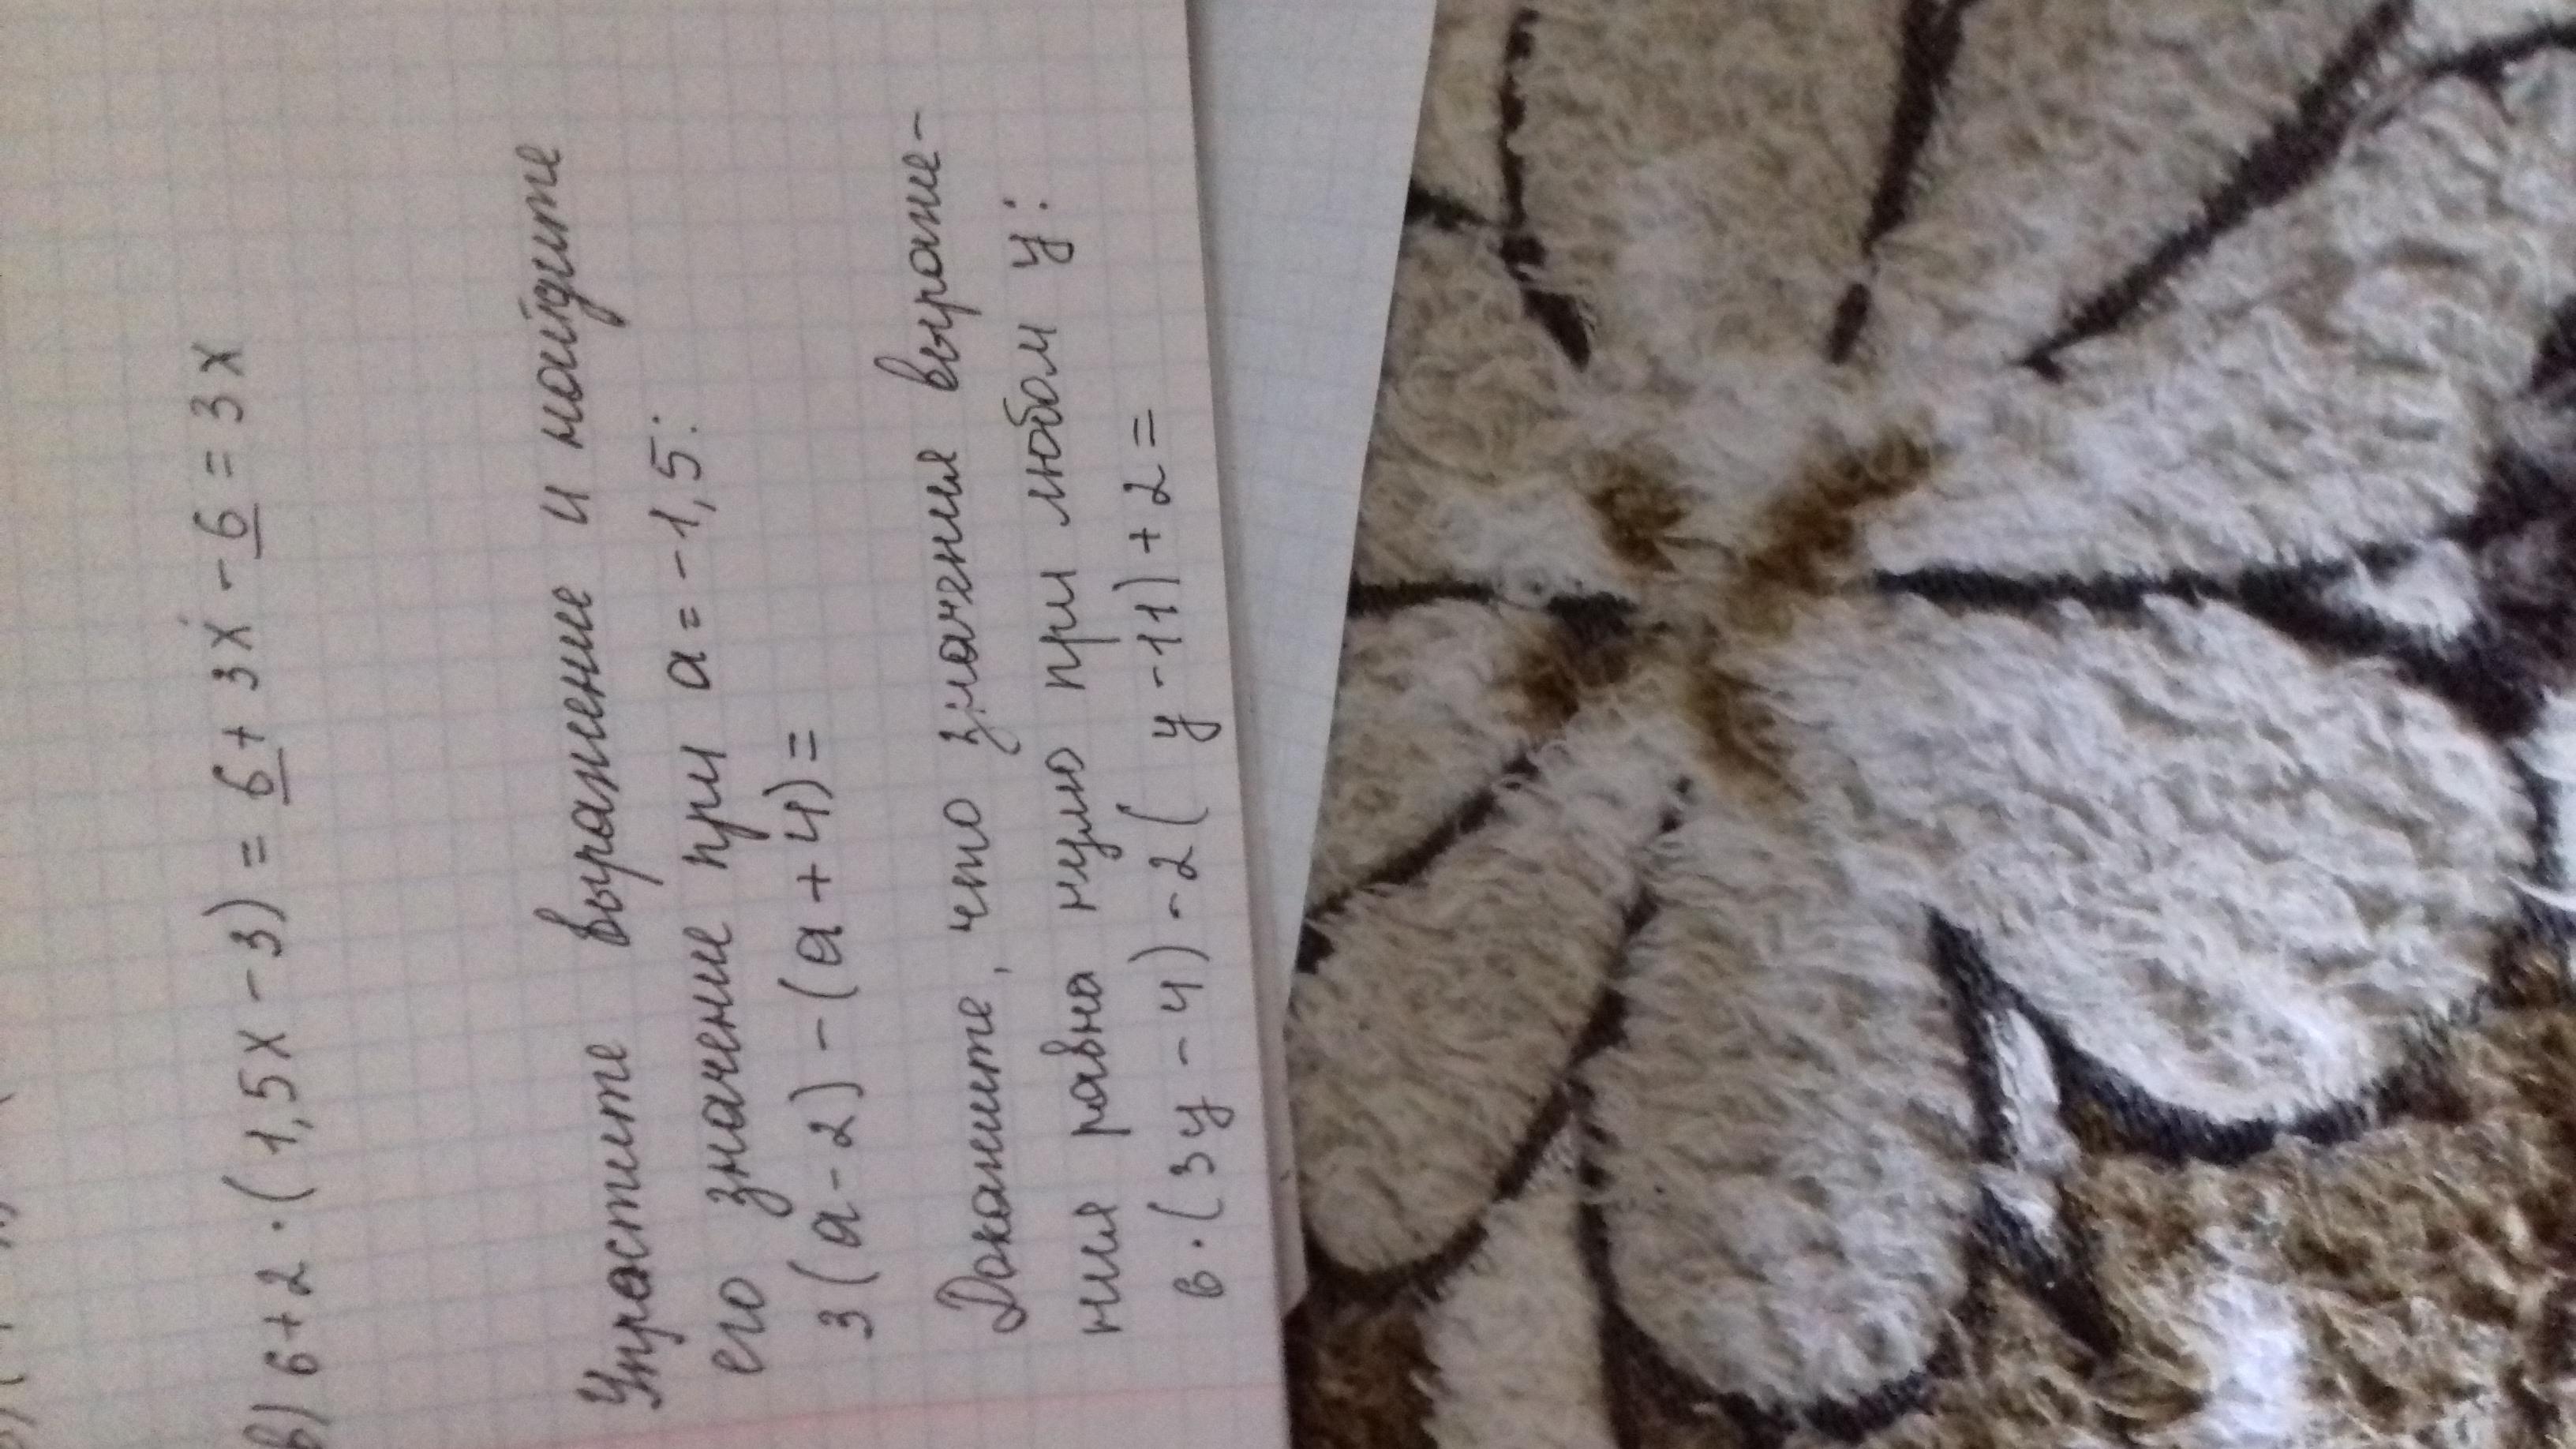 в) 6+2·(1,5x-3) = 6+3x-6=3x
Упростите выражение и найдите
его значение при a=-1,5:
3(a-2)-(a+4)=
Докажите, что значения выраже-
ния равна нулю при любом y:
6·(3y-4)-2(y-11)+2=